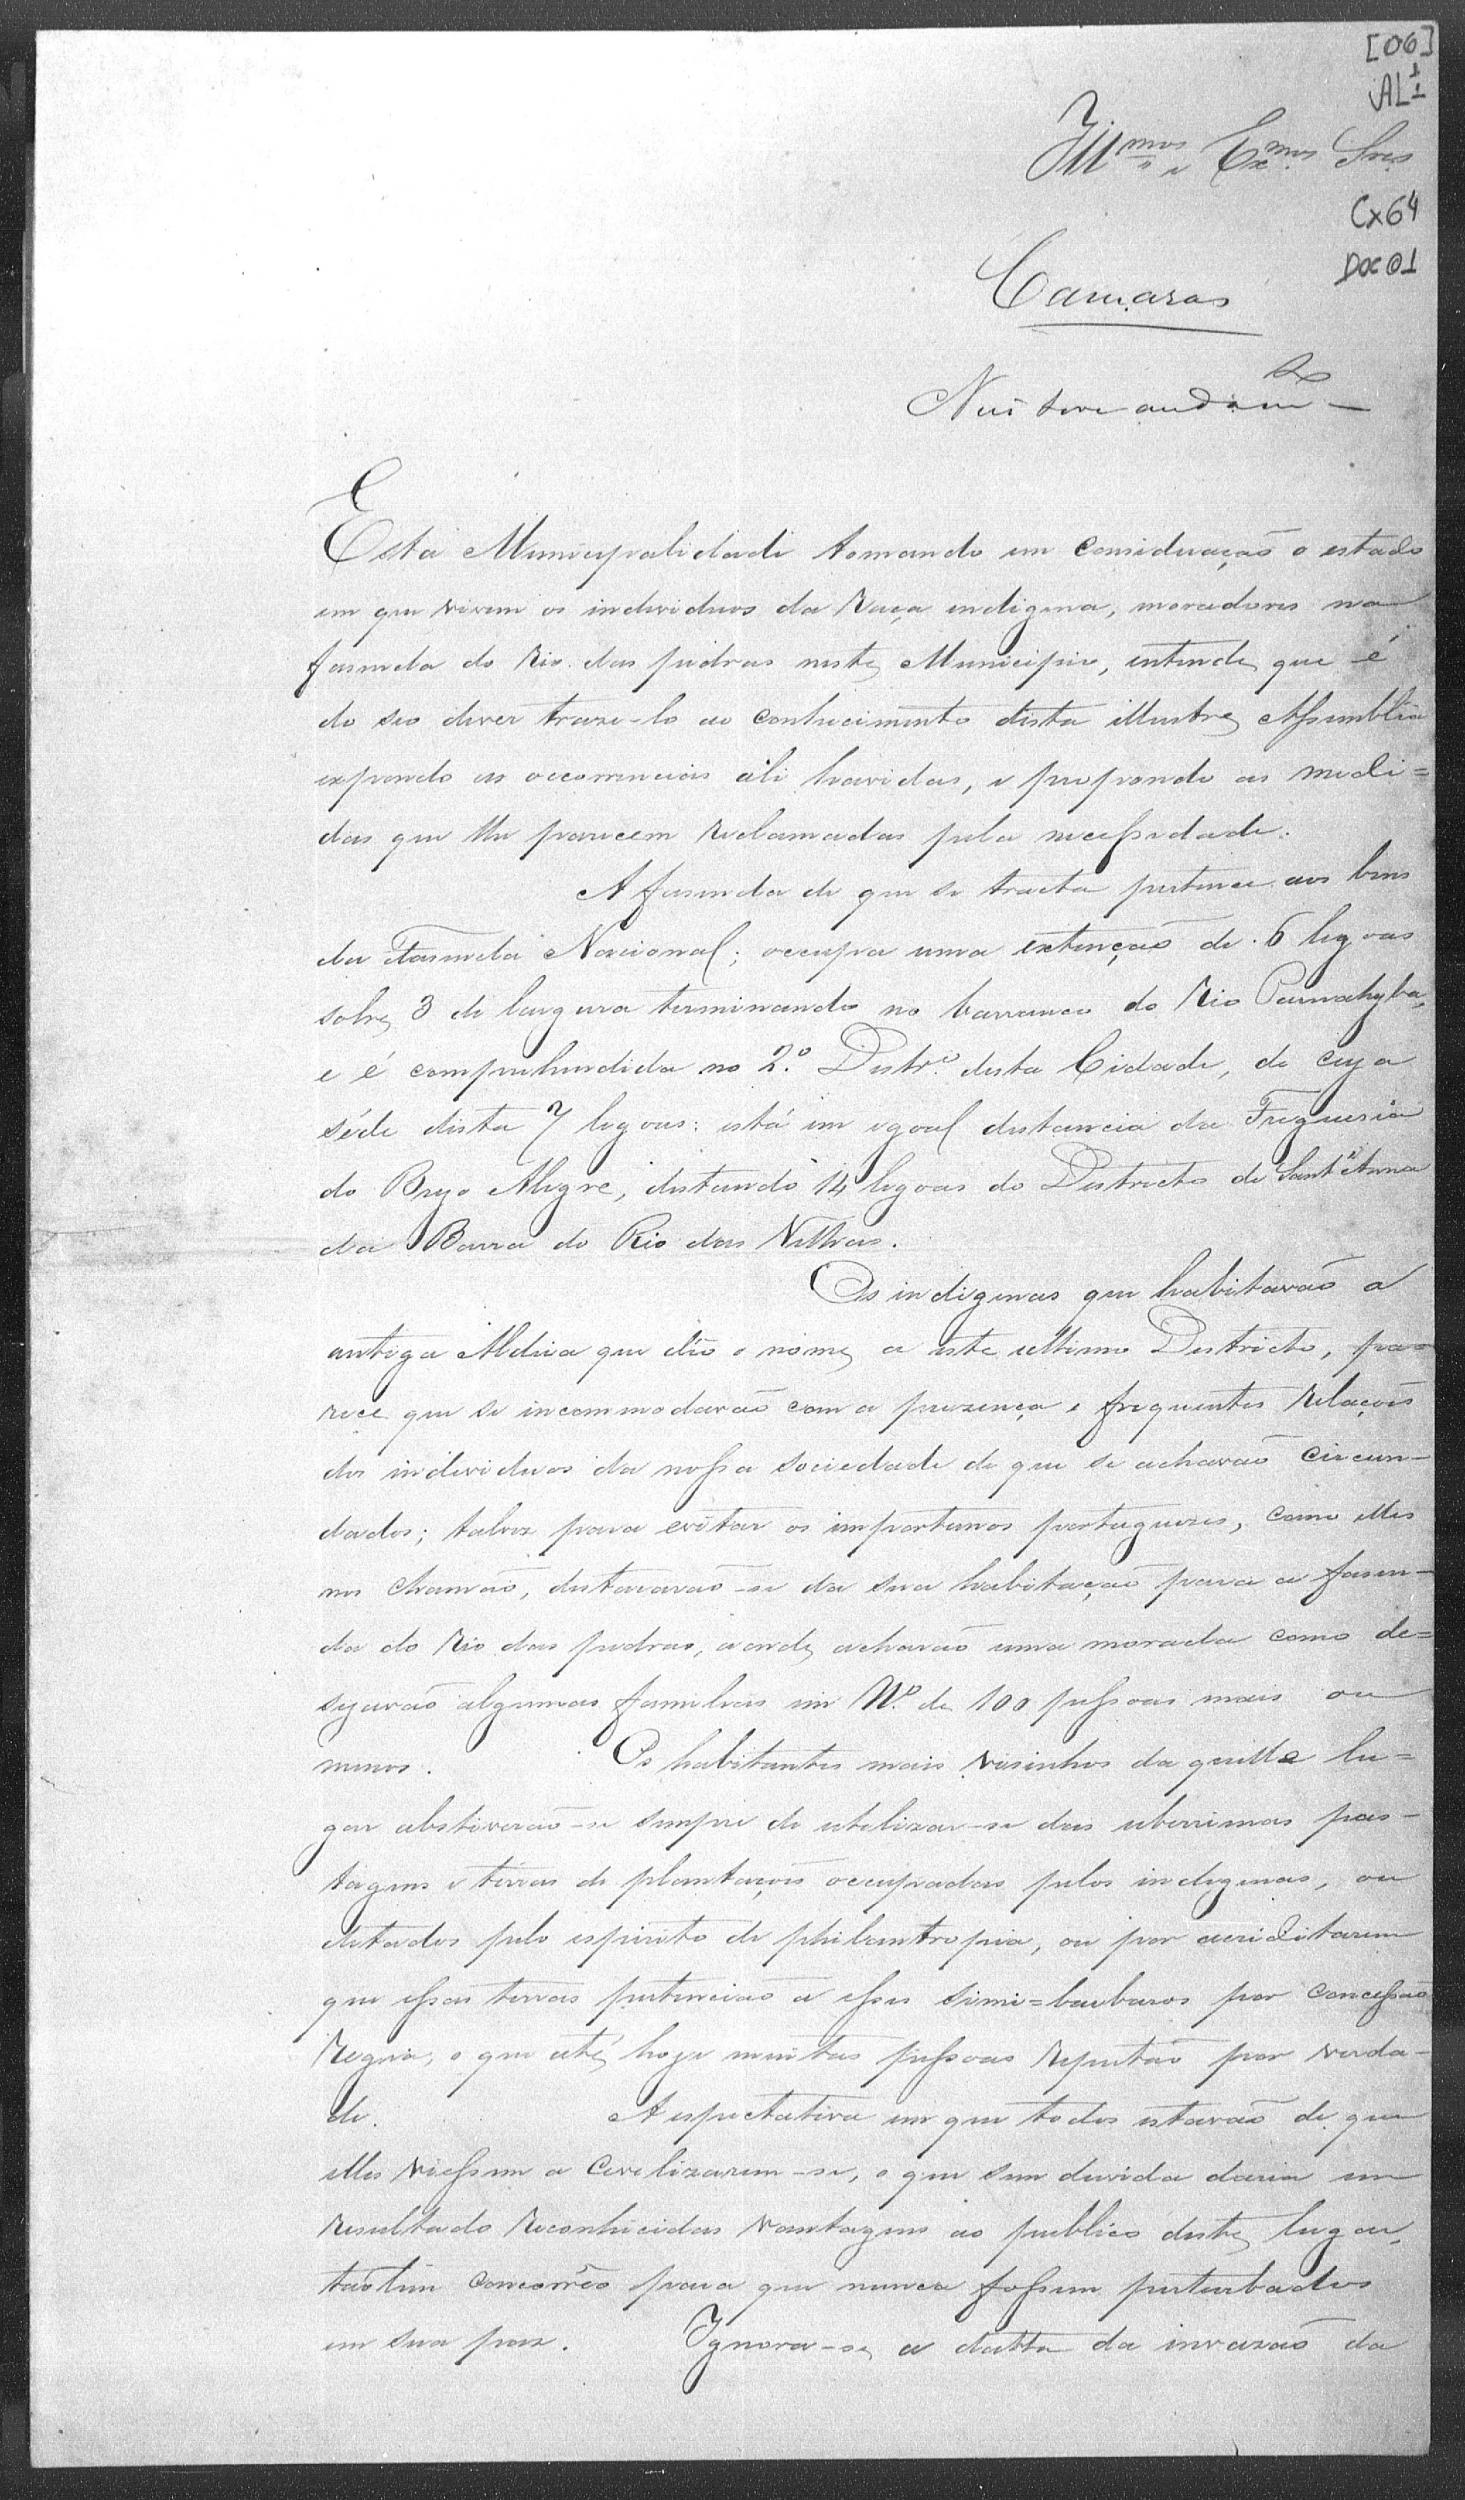 [06]
AL 1
1
Illmos e Exmos Snres
Cx64
Doc 01
Camaras
Não teve andam
Esta Municipalidade tomando em consideração o estado
em que vivem os individuos da Raça indigena, moradores na
fasenda do Rio das pedras neste Municipio, entende que é
do seo dever traze-lo ao conhecimento desta illustre Assemblea
expondo as occorrencias ali havidas, e propondo as medi=
das que lhe parecem reclamadas pela necessidade.
A fasenda de que se tracta pertence aos bens
da Fasenda Nacional; occupa uma extenção de 6 legoas
sobre 3 de largura terminando no barranco do Rio Parnahyba,
e é comprehendida no 2.º Distr.º desta Cidade, de cuja
séde dista 7 legoas: está em igoal distancia da Freguesia
do Brejo Alegre, distando 14 legoas do Districto de Sant'Anna
da Barra do Rio das Velhas.
Os indigenas que habitavão a
antiga Aldeia que dêo o nome a este ultimo Districto, pa=
rece que se incommodavão com a prezença e frequentes relaçoes
dos individuos da nossa sociedade de que se achavão circun-
dados; talvez para evitar os importunos portuguezes, como elles
nos chamão, destacarão-se da sua habitação para a fasen-
da do Rio das pedras, aonde acharão uma morada como de=
sejavão algumas familias em Nº de 100 pessoas mais ou
menos. Os habitantes mais visinhos da quelle lu=
gar abstiverão-se sempre de utilizar-se das uberrimas pas-
tagens e terras de plantações occupadas pelos indigenas, ou
dictados pelo espirito de philantropia, ou por acriditarem
que essas terras pertencião a esses simi=barbaros por concessão
Regia, o que até hoje muitas pessoas reputão por verda-
de. A espectativa em que todos estavão de que
elles viessem a civilizarem-se, o que sem duvida daria em
resultado reconhecidas vantagens ao publico deste lugar,
tãobem concorrêo para que nunca fossem perturbados
em sua paz. Ignora-se a datta da invazão da